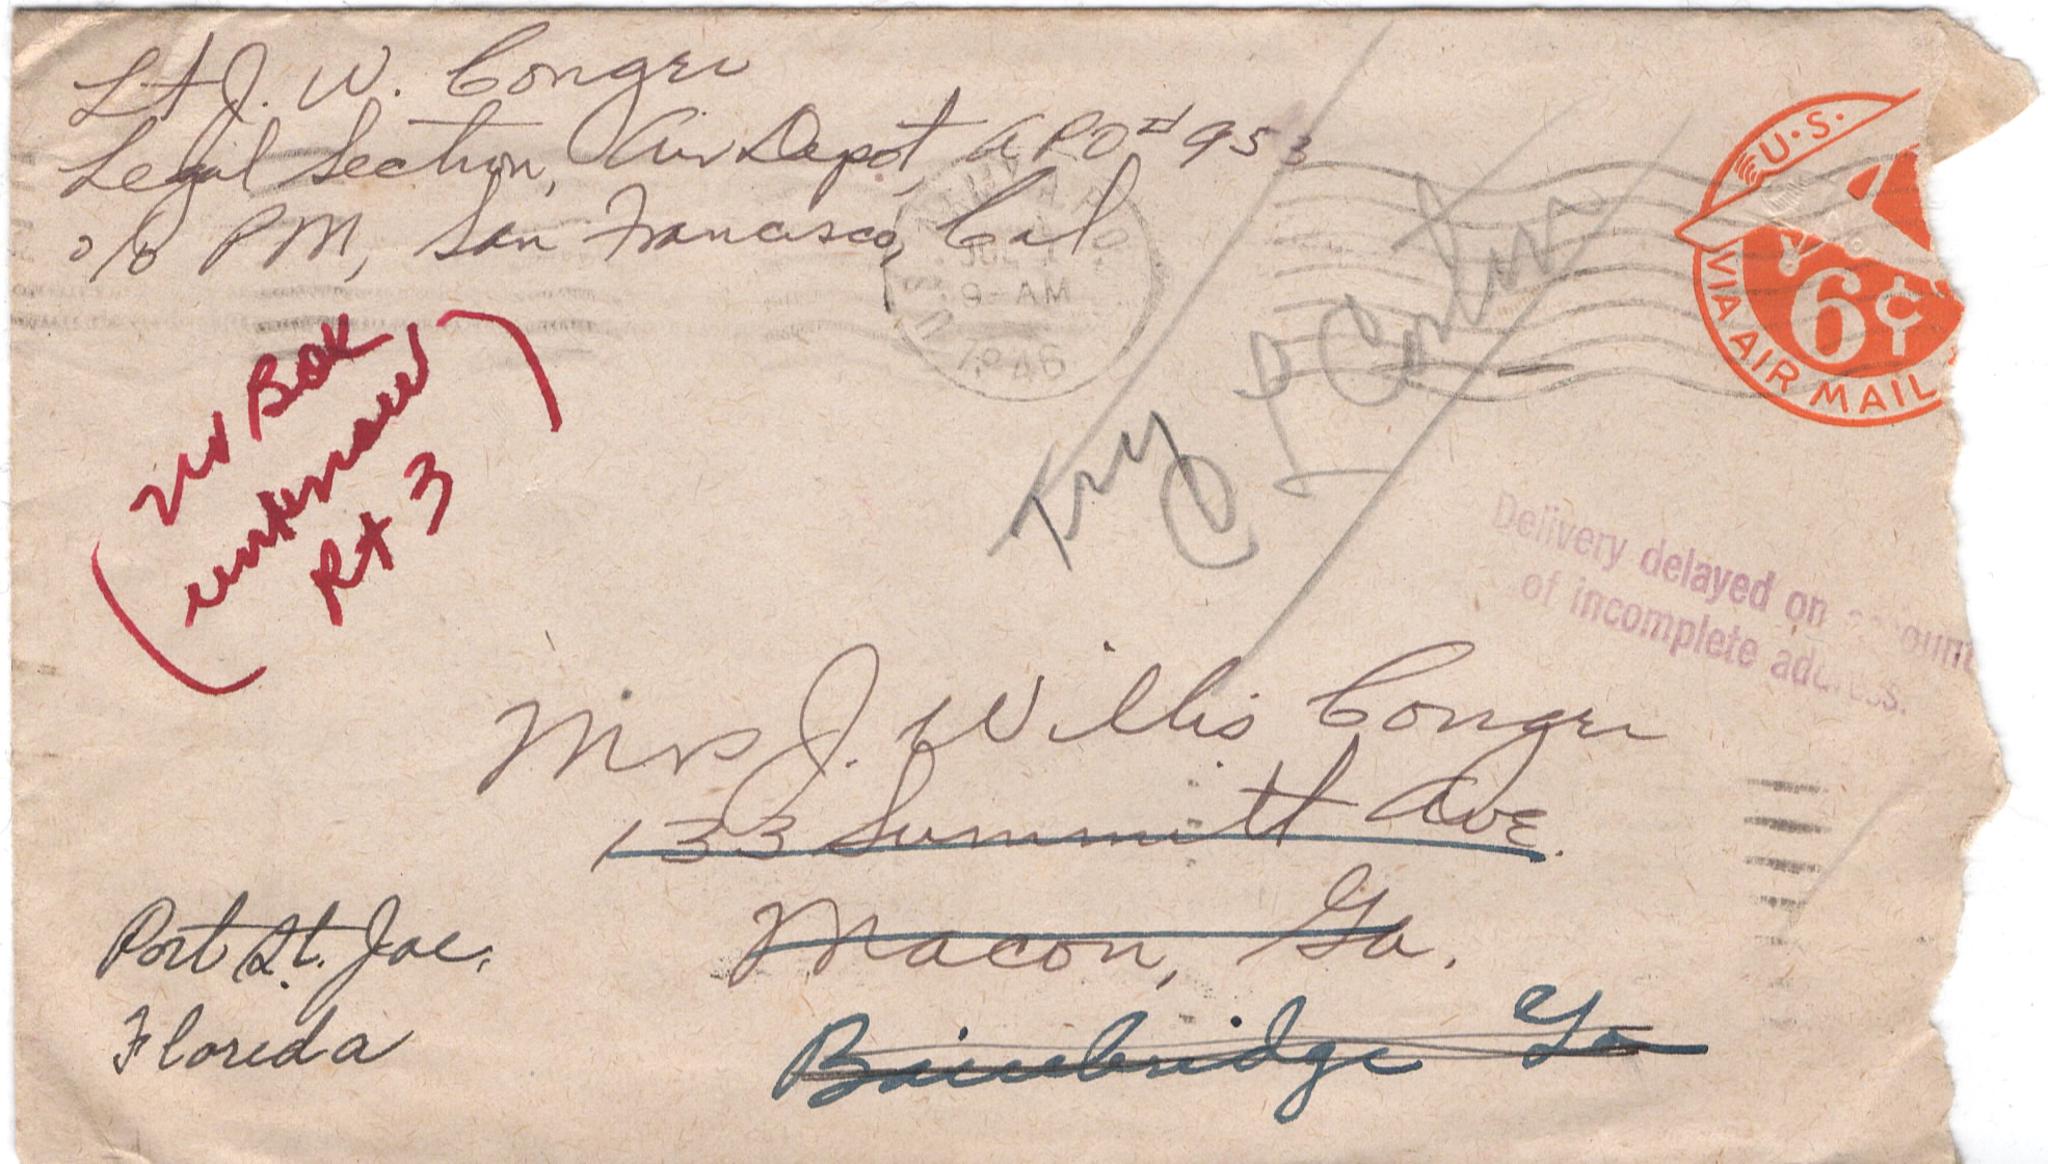 Lt J. W. Conger
Legal Section, Air Depot, APO # 953
c/o PM, San Francisco, Cal
U.S.
VIA AIR MAIL
6¢
U.S.
JUL 1
9-AM
1946
no Box
unknown
Rt 3
Try
C L
Delivery delayed on account
of incomplete address.
Mrs J. Willis Conger
133 Summitt Ave.
Macon, Ga.
Bainbridge Ga
Port St. Joe,
Florida